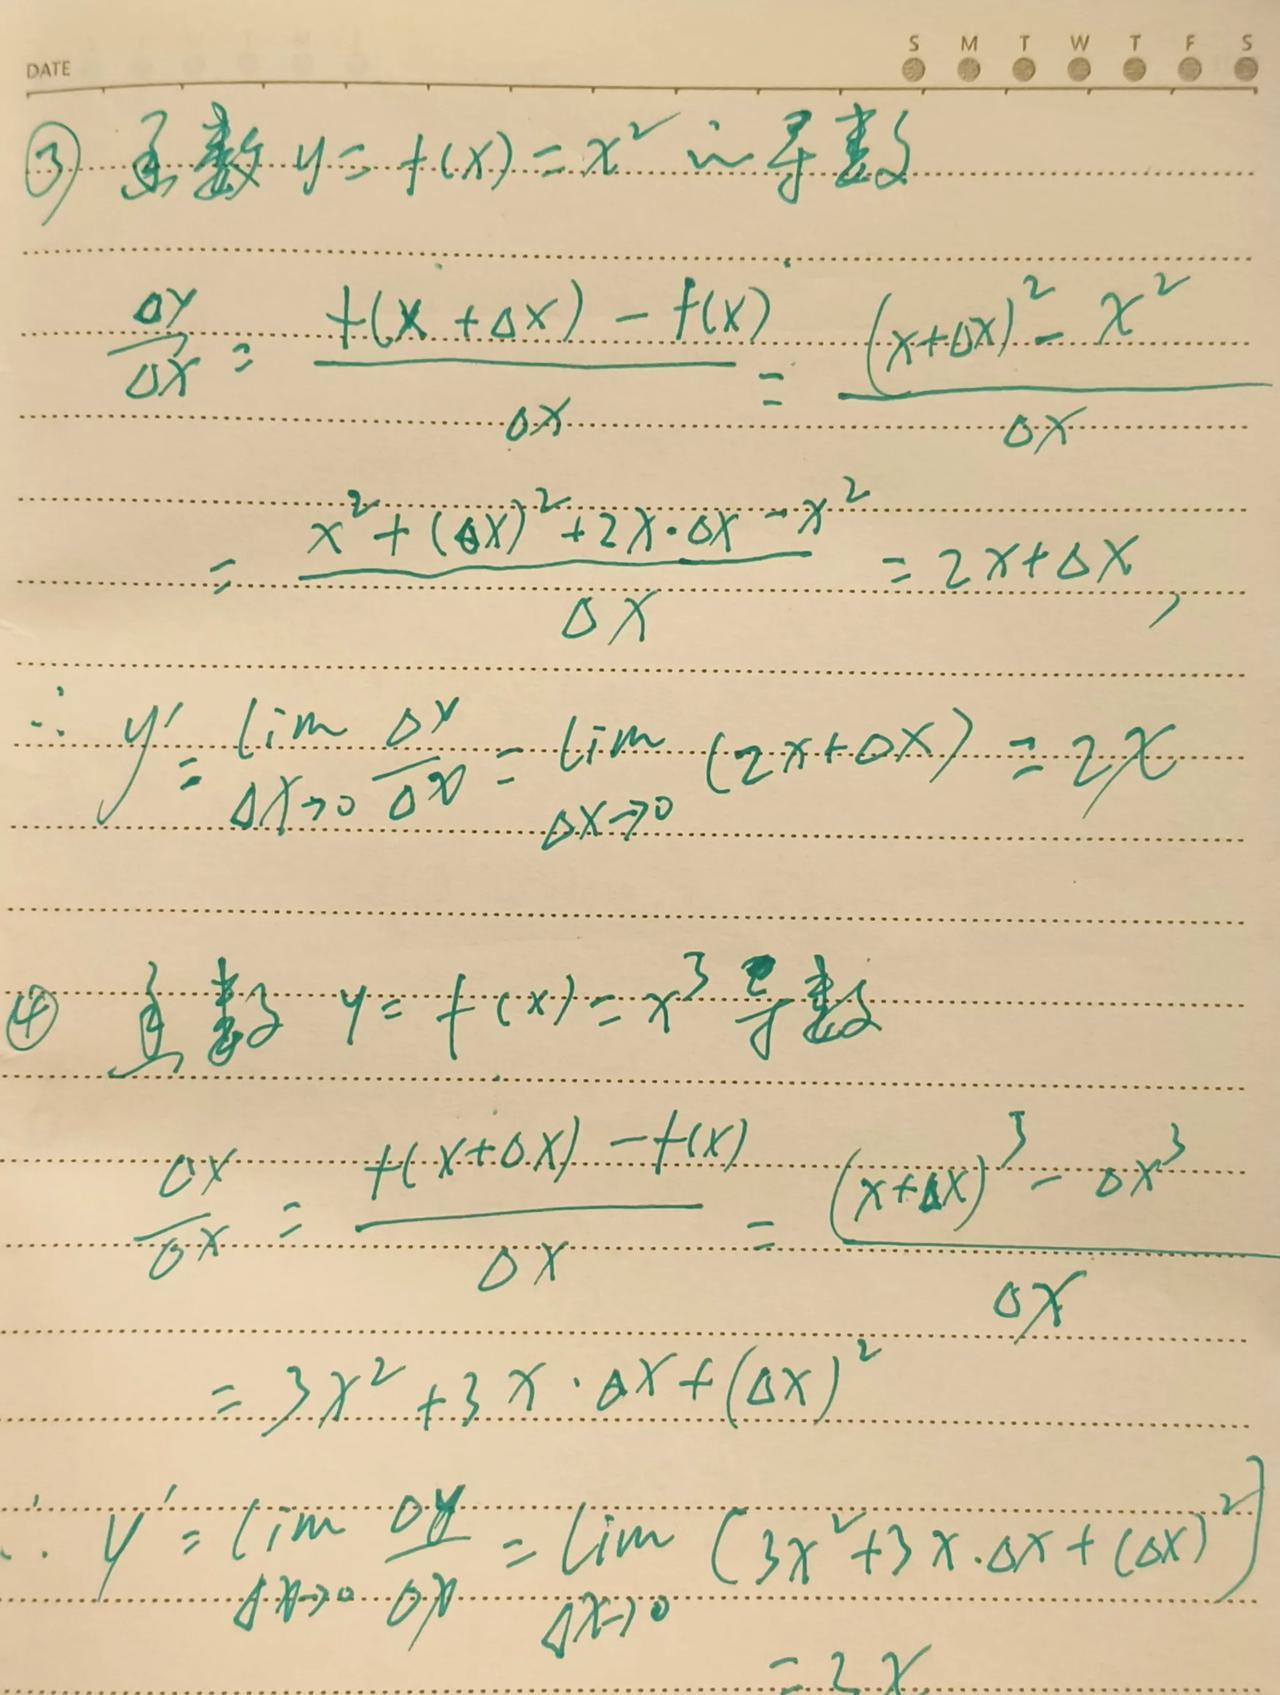 DATE S M T W T F S
③ 函数 y = f(x) = x² 的导数
Δy/Δx = (f(x+Δx) - f(x))/Δx = ((x+Δx)² - x²)/Δx
= (x² + (Δx)² + 2x·Δx - x²)/Δx = 2x+Δx,
∴ y' = lim Δx→0 Δy/Δx = lim Δx→0 (2x+Δx) = 2x
④ 函数 y = f(x) = x³ 导数
Δx/Δx = (f(x+Δx) - f(x))/Δx = ((x+Δx)³ - Δx³)/Δx
= 3x² + 3x·Δx + (Δx)²
∴ y' = lim Δx→0 Δy/Δx = lim Δx→0 [3x² + 3x·Δx + (Δx)²]